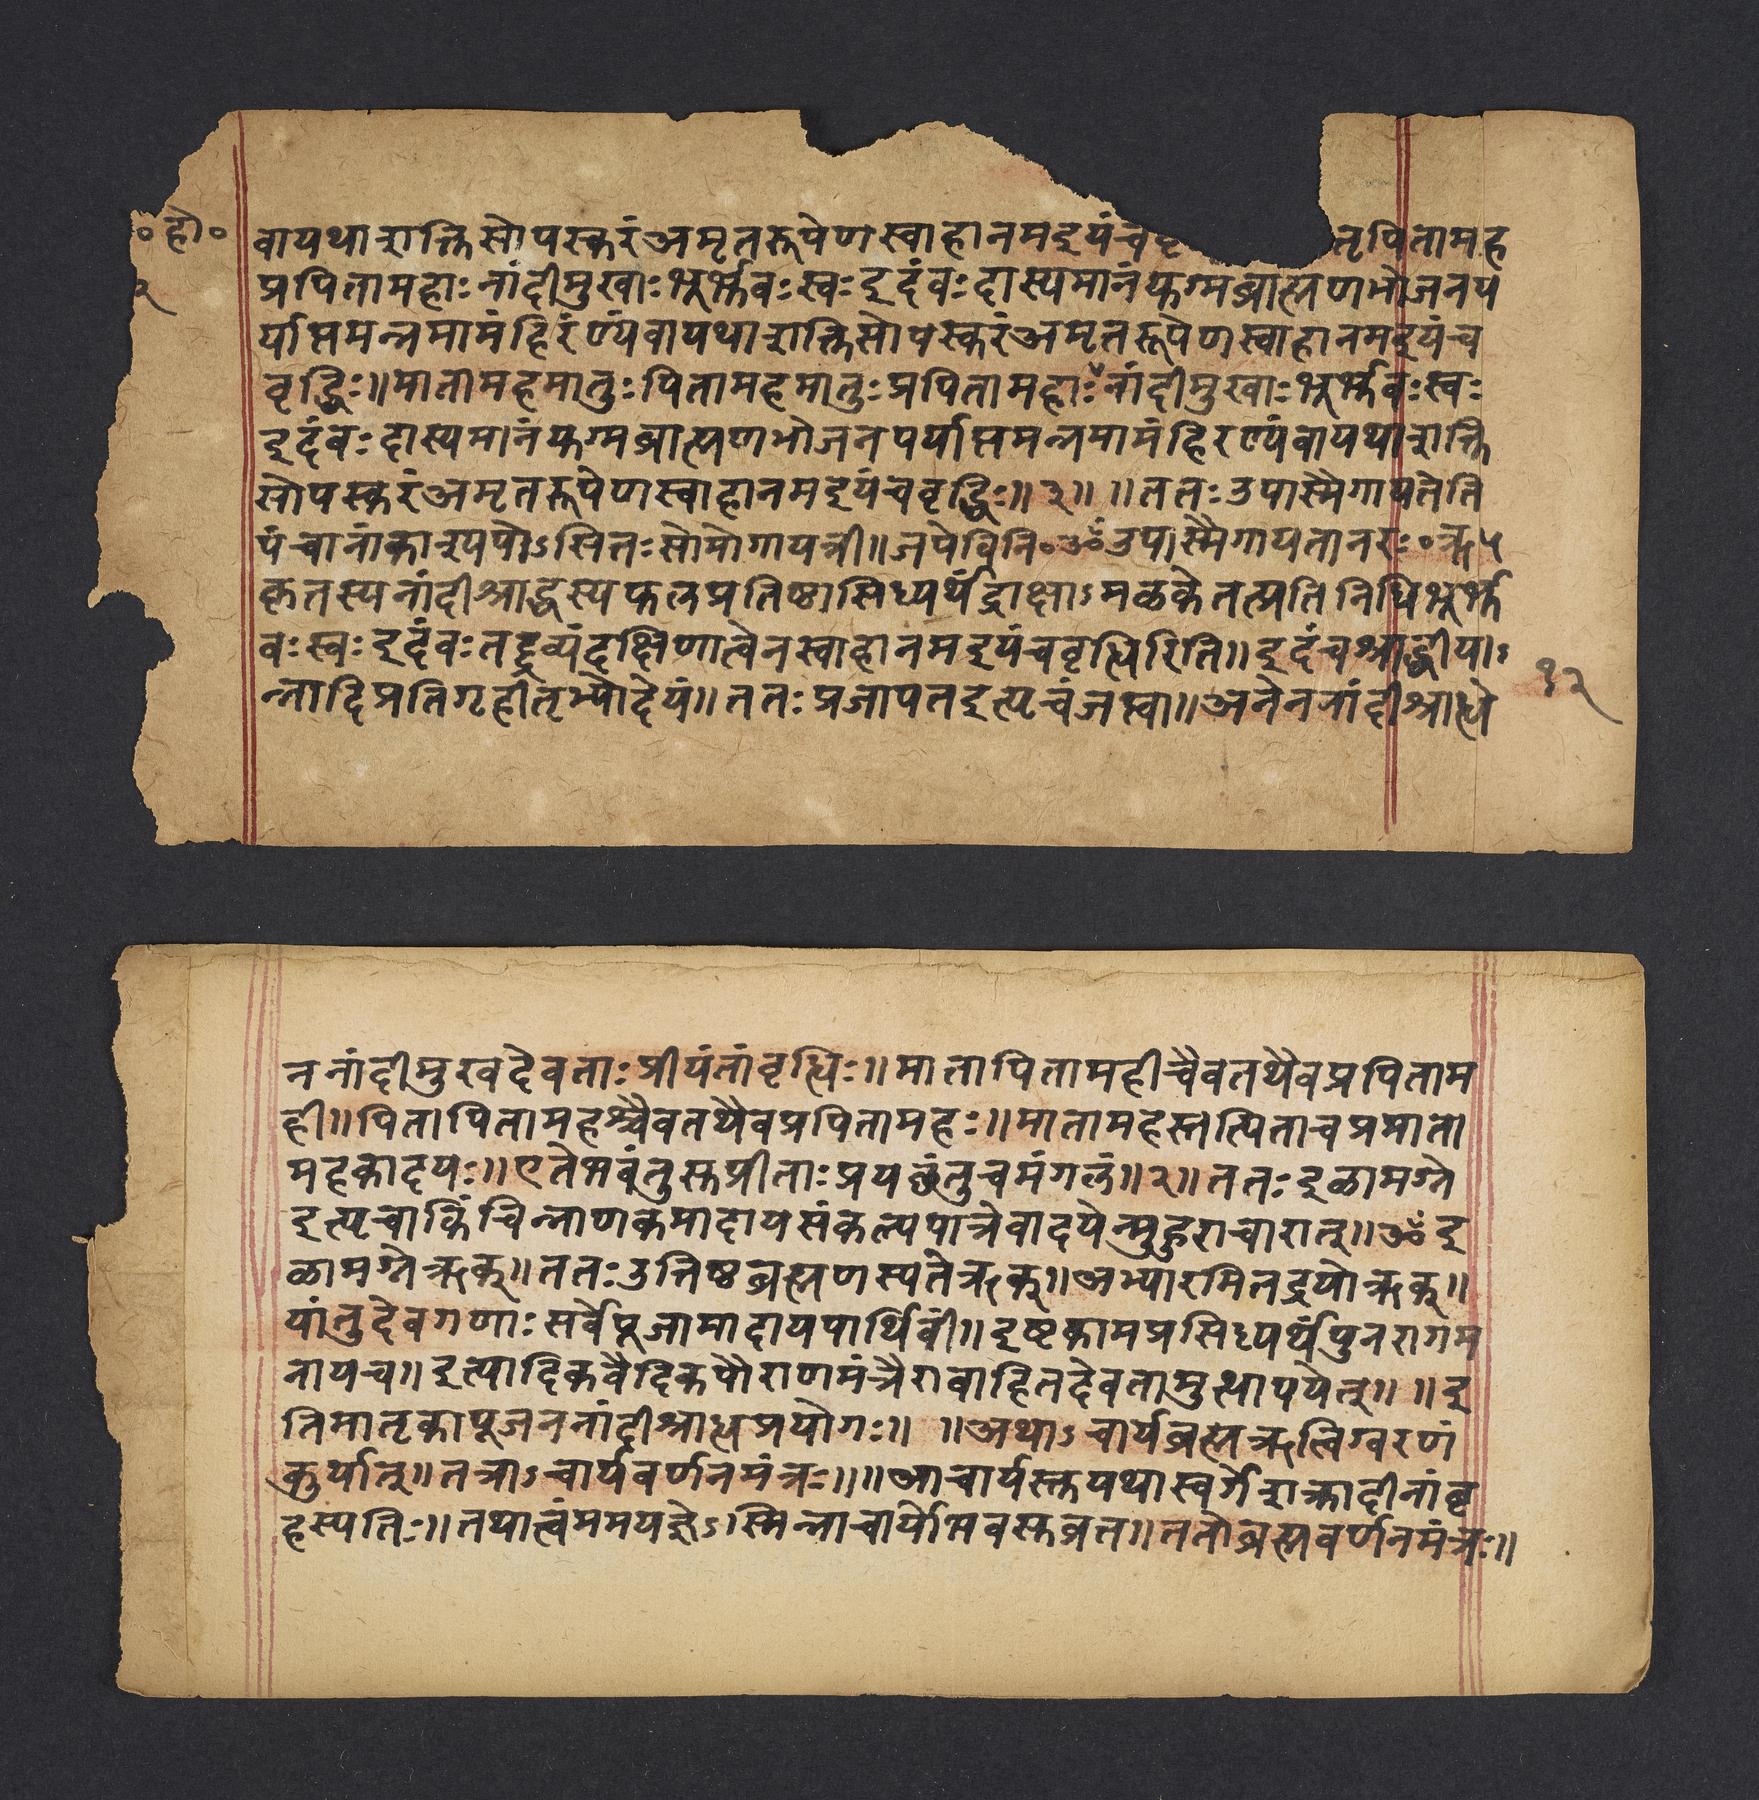 ॰हो॰
वायथाशक्तिसोपस्करंअमृतरूपेणस्वाहानमइयंचवृ तृपितामह
प्रपितामहाःनांदीमुखाःभूर्भुवःस्वःइदंवःदास्यमानंयुग्मब्राह्मणभोजनप
र्याप्तमन्नमामंहिरंण्यंवायथाशक्तिसोपस्करंअमृतरूपेणस्वाहानमइयंच
वृद्धिः॥मातामहमातुःपितामहमातुःप्रपितामहाःनांदीमुखाःभूर्भुवःस्वः
इदंवःदास्यमानंयुग्मब्राह्मणभोजनपर्याप्तमन्नमामंहिरण्यंवायथाशक्ति
सोपस्करंअमृतरूपेणस्वाहानमइयंचवृद्धिः॥३॥ ॥ततःउपास्मैगायतेति
पंचानांकाश्यपोऽसितःसोमोगायत्री॥जपेविनि॰ॐउपास्मैगायतानरः॰ऋ५
कृतस्यनांदीश्राद्धस्यफलप्रतिष्ठासिध्यर्थंद्राक्षाऽमळकेतत्प्रतिनिधिभूर्भु
वःस्वःइदंवःतद्द्रव्यंदक्षिणात्वेनस्वाहानमइयंचवृध्धिरिति॥इदंचश्राद्धीया
न्नादिप्रतिगृहीतृभ्योदेयं॥ततःप्रजापतइत्यृचंजप्त्वा॥अनेननांदीश्राध्धे
१२
ननांदीमुखदेवताःप्रीयंतांवृध्धिः॥मातापितामहीचैवतथैवप्रपिताम
ही॥पितापितामहश्चैवतथैवप्रपितामहः॥मातामहस्तत्पिताचप्रमाता
महकादयः॥एतेभवंतुसुप्रीताःप्रयछंतुचमंगलं॥२॥ततःइळामग्ने
इत्यृचाकिंचिन्नाणकमादायसंकल्पपात्रेवादयेन्मुहुराचारात्॥ॐइ
ळामग्नेऋक्॥ततःउत्तिष्ठब्रह्मणस्पतेऋक्॥अभ्यारमितद्रयोऋक्॥
यांतुदेवगणाःसर्वेपूजामादायपार्थिवीं॥इष्टकामप्रसिध्यर्थंपुनरागम
नायच॥इत्यादिकवैदिकपौराणमंत्रैरावाहितदेवतामुत्थापयेत्॥ ॥इ
तिमातृकापूजननांदीश्राध्धप्रयोगः॥ ॥अथाऽचार्यब्रह्मऋत्विग्वरणं
कुर्यात्॥तत्राऽचार्यवर्णनमंत्रः॥॥आचार्यस्तुयथास्वर्गेशक्रादीनांबृ
हस्पतिः॥तथात्वंममयज्ञेऽस्मिन्नाचार्योभवसुव्रत॥ततोब्रह्मवर्णनमंत्रः॥